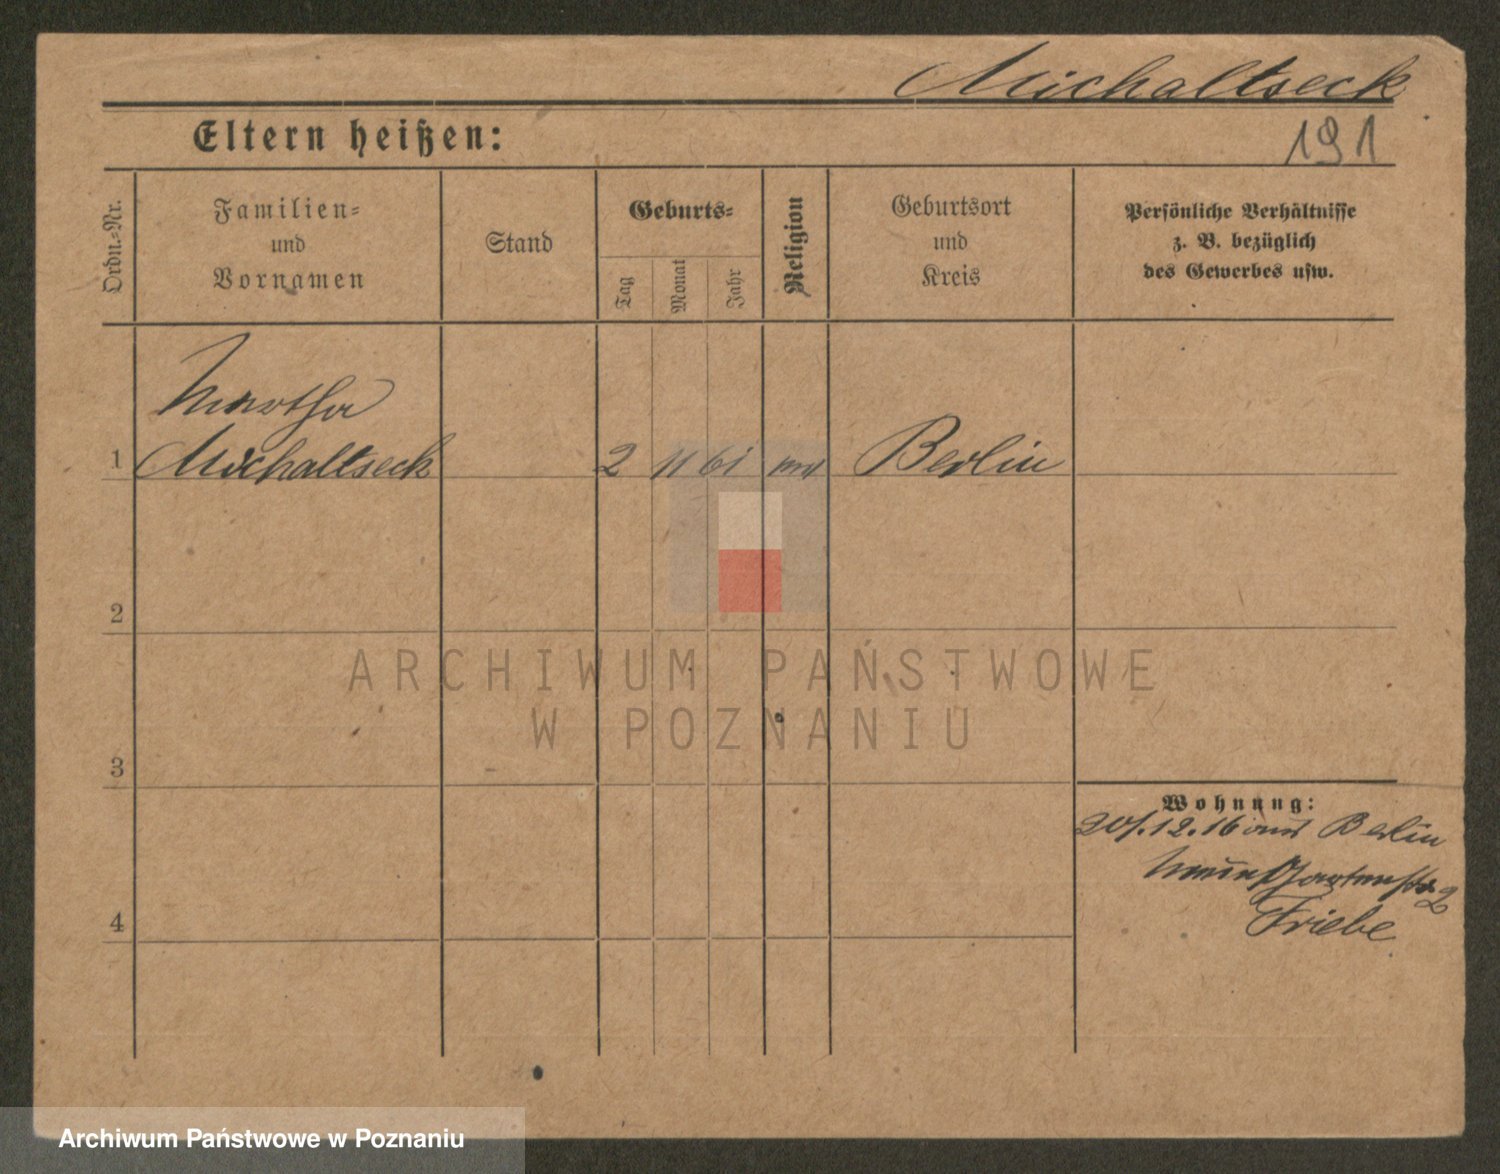 Michaltseck
Eltern heißen:
191
Ordn.-Nr.
Familien-
und
Vornamen
Stand
Geburts-
Tag
Monat
Jahr
Religion
Geburtsort
und
Kreis
Persönliche Verhältnisse
z. B. bezüglich
des Gewerbes usw.
Martha
1 Michaltseck 2 11 61 Berlin
2
ARCHIWUM PAŃSTWOWE
W POZNANIU
3
Wohnung:
20/.12.16 aus Berlin
2
Friebe
4
Archiwum Państwowe w Poznaniu